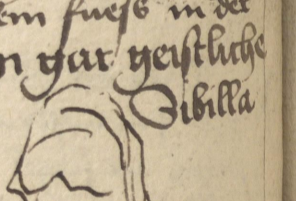 em fuess in der
n gar geistliche
Sibilla